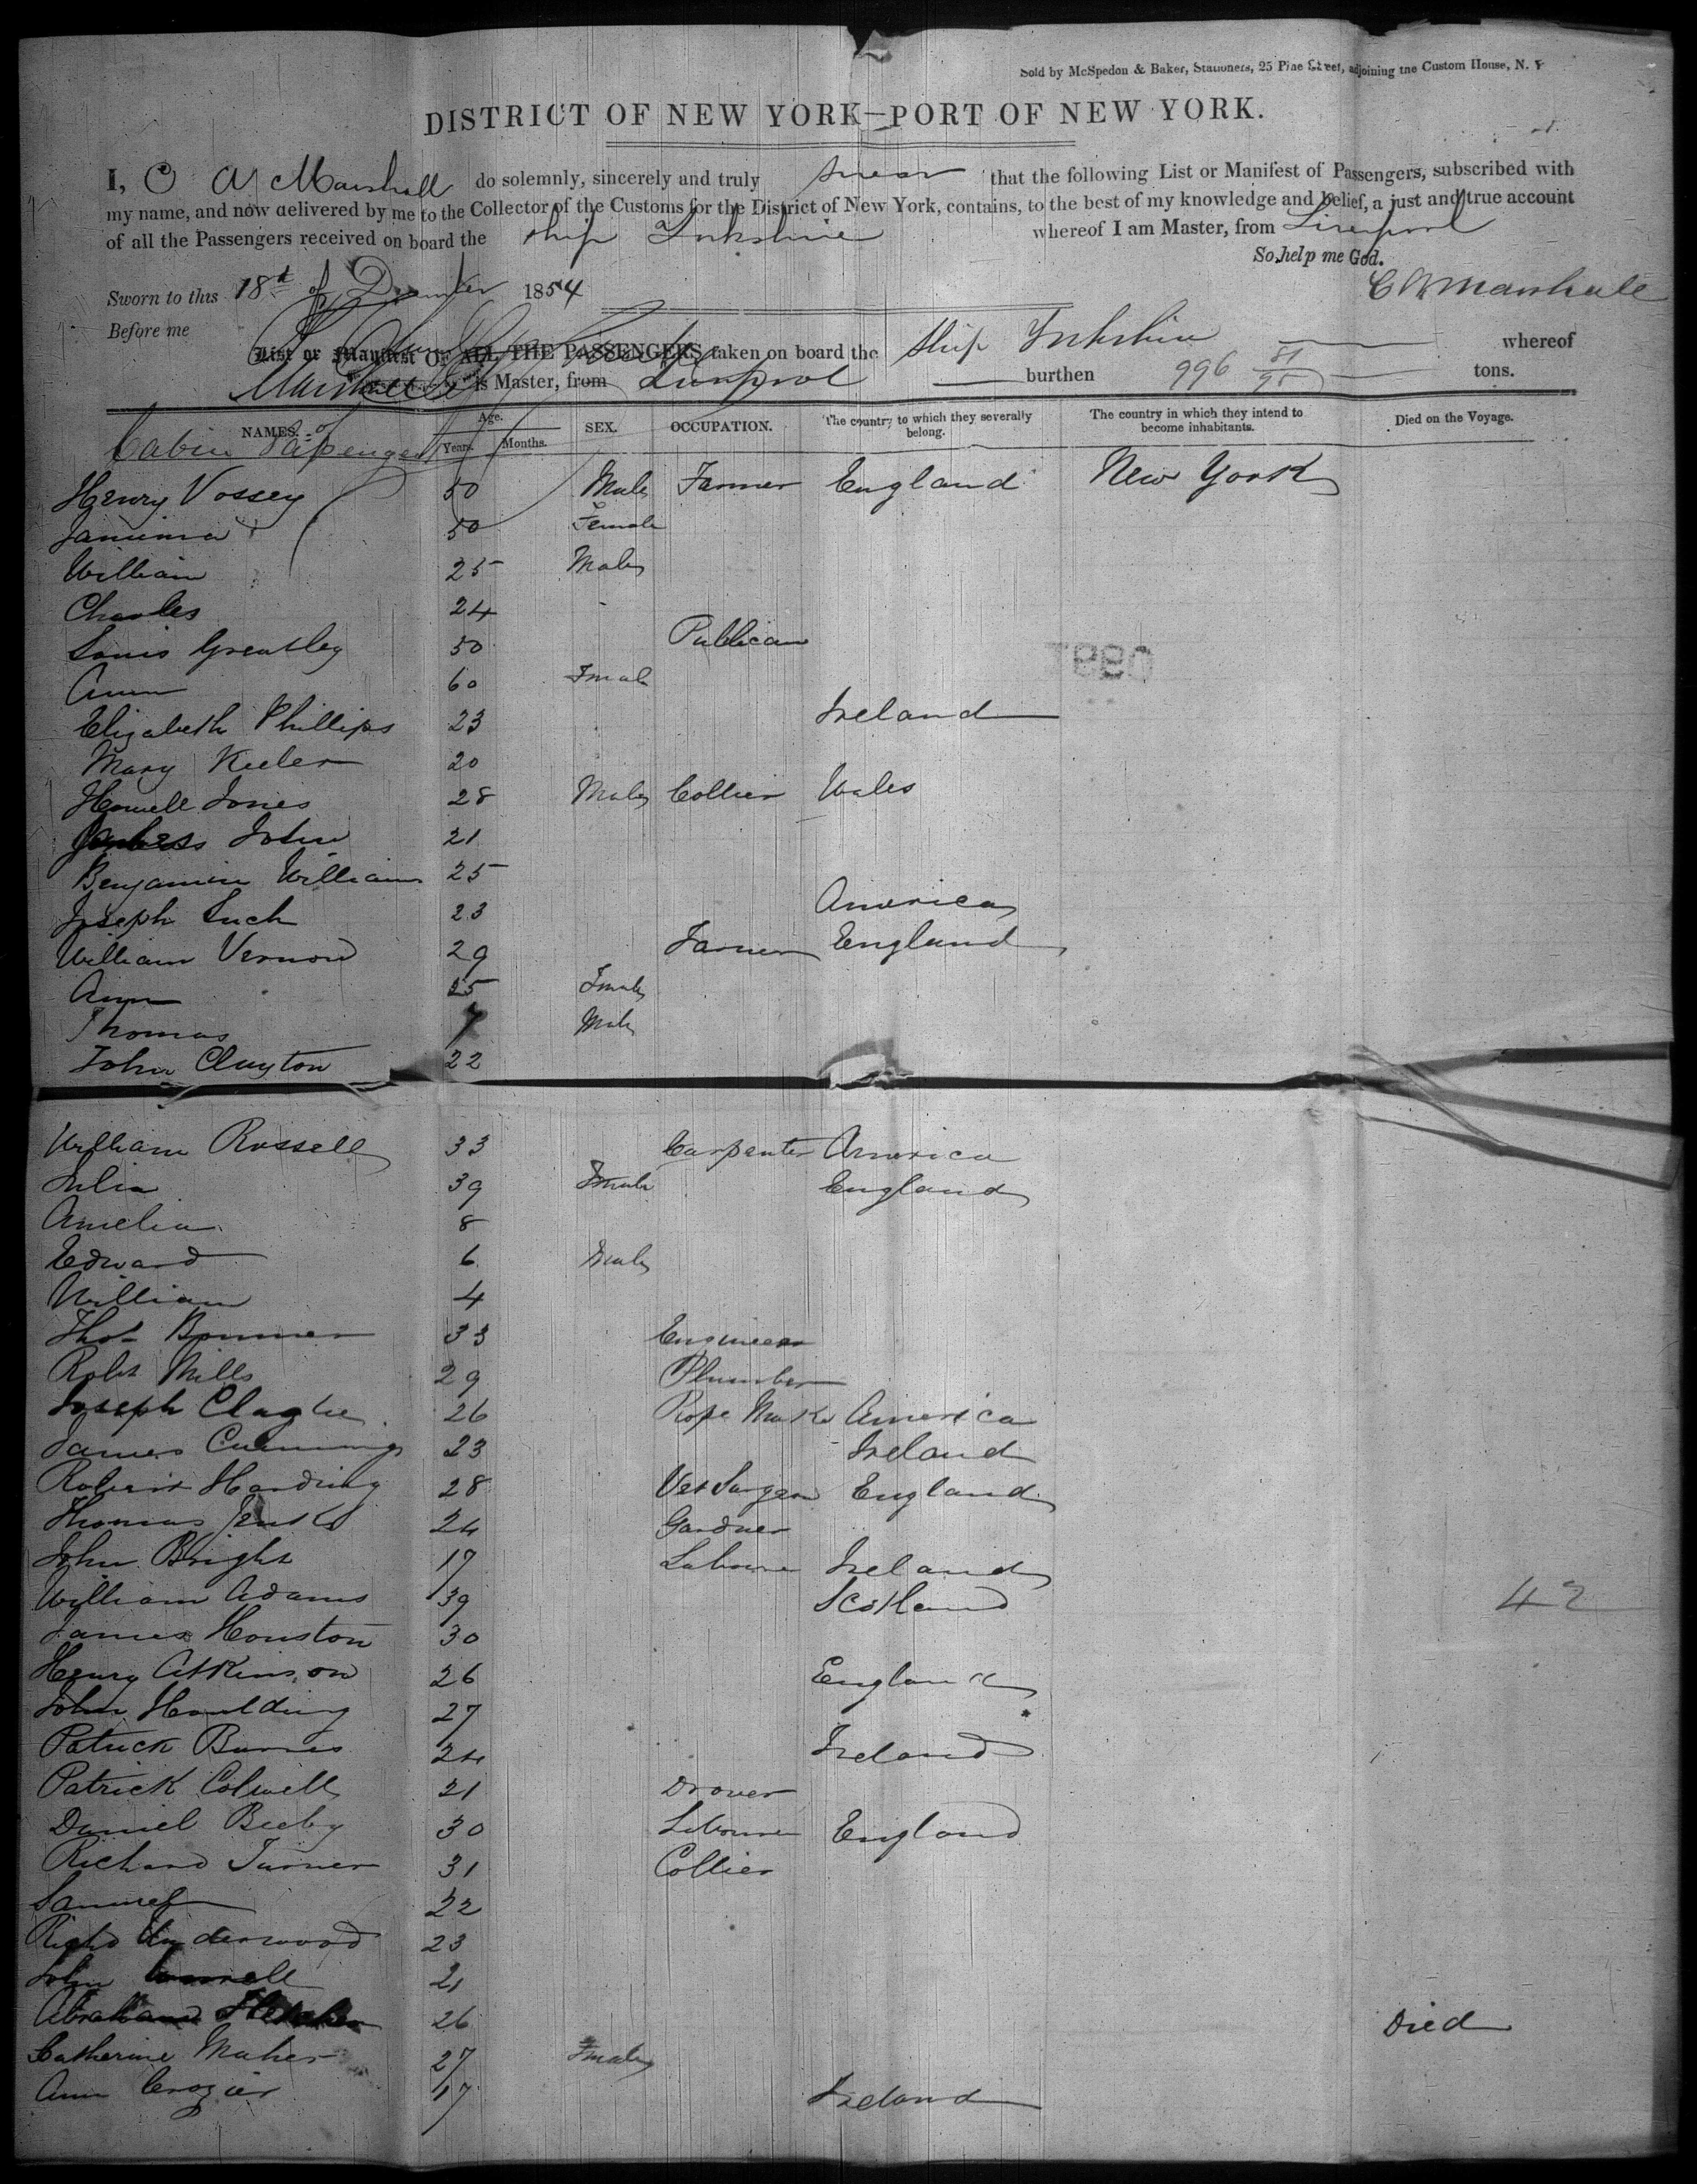 Sold by McSpedon & Baker, Stationers, 25 Pine Street, adjoining the Custom House, N. Y
DISTRICT OF NEW YORK—PORT OF NEW YORK.
I, C A Marshall do solemnly, sincerely and truly swear that the following List or Manifest of Passengers, subscribed with
my name, and now delivered by me to the Collector of the Customs for the District of New York, contains, to the best of my knowledge and belief, a just and true account
of all the Passengers received on board the ship Yorkshire whereof I am Master, from Liverpool
So help me God.
Sworn to this 18th of December 1854 C A Marshall
Before me
List or Manifest OF ALL THE PASSENGERS taken on board the Ship Yorkshire whereof
Marshall is Master, from Liverpool burthen 996 81/95 tons.
NAMES. Age. Years. Months. SEX. OCCUPATION. The country to which they severally belong. The country in which they intend to become inhabitants. Died on the Voyage.
Cabin Passengers
Henry Vossey 50 Male Farmer England New York
Jamima 50 Female
William 25 Male
Charles 24
Louis Greatley 50 Publican
Ann 60 Female
Elizabeth Phillips 23 Ireland
Mary Keeler 20
Howell Jones 28 Male Collier Wales
John 21
Benjamin Williams 25
Joseph Such 23 America
William Vernon 29 Farmer England
Ann 25 Female
Thomas 7 Male
John Clayton 22
William Russell 33 Carpenter America
Julia 39 Female England
Amelia 8
Edward 6 Male
William 4
Thos Bonner 33 Engineer
Robt Mills 29 Plumber
Joseph Clague 26 Rope Maker America
James Cummings 23 Ireland
Robert Harding 28 Vet Surgeon England
Thomas Jenks 24 Gardner
John Bright 17 Labourer Ireland
William Adams 39 Scotland 42
James Houston 30
Henry Atkinson 26 England
John Houlding 27
Patrick Burnes 24 Ireland
Patrick Colwell 21 Drover
Daniel Beeby 30 Labourer England
Richard Turner 31 Collier
Samuel 22
Richd Underwood 23
John 21
Abraham Fletcher 26 Died
Catherine Maher 27 Female
Ann Crozier 17 Ireland